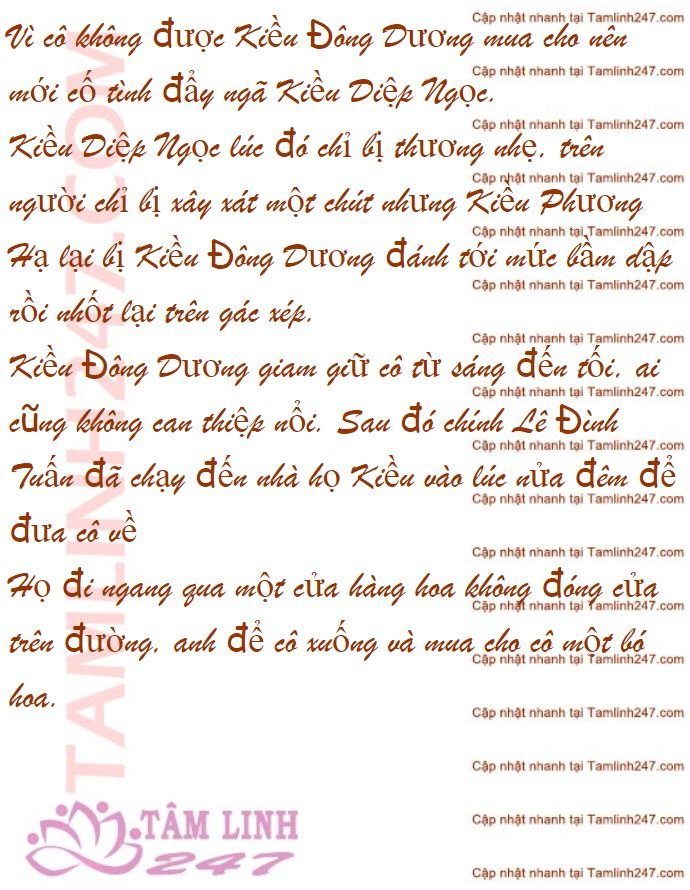 Cập nhật nhanh tại Tamlinh247.com
Vì cô không được Kiều Đông Dương mua cho nên
Cập nhật nhanh tại Tamlinh247.com
mới cố tình đẩy ngã Kiều Diệp Ngọc.
Cập nhật nhanh tại Tamlinh247.com
Kiều Diệp Ngọc lúc đó chỉ bị thương nhẹ, trên
Cập nhật nhanh tại Tamlinh247.com
người chỉ bị xây xát một chút nhưng Kiều Phương
Cập nhật nhanh tại Tamlinh247.com
Hạ lại bị Kiều Đông Dương đánh tới mức bầm dập
Cập nhật nhanh tại Tamlinh247.com
rồi nhốt lại trên gác xép.
Cập nhật nhanh tại Tamlinh247.com
Kiều Đông Dương giam giữ cô từ sáng đến tối, ai
Cập nhật nhanh tại Tamlinh247.com
cũng không can thiệp nổi. Sau đó chính Lê Đình
Cập nhật nhanh tại Tamlinh247.com
Tuấn đã chạy đến nhà họ Kiều vào lúc nửa đêm để
Cập nhật nhanh tại Tamlinh247.com
đưa cô về
Cập nhật nhanh tại Tamlinh247.com
Họ đi ngang qua một cửa hàng hoa không đóng cửa
Cập nhật nhanh tại Tamlinh247.com
trên đường, anh để cô xuống và mua cho cô một bó
Cập nhật nhanh tại Tamlinh247.com
hoa.
Cập nhật nhanh tại Tamlinh247.com
Cập nhật nhanh tại Tamlinh247.com
Cập nhật nhanh tại Tamlinh247.com
Cập nhật nhanh tại Tamlinh247.com
TAMLINH247.COM
TÂM LINH
247